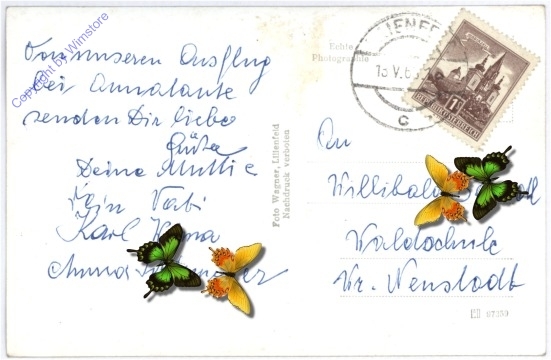 Von unseren Ausflug
bei Annatante
senden Dir liebe
Grüße
Deine Mutti
Dein Vati
Karl
Anna
Copyright by Wimstore
Echte
Photographie
Foto Wagner, Lilienfeld
Nachdruck verboten
13.V.6
c
REPUBLIK ÖSTERREICH
An
Willibald
Waldschule
Wr. Neustadt
07359